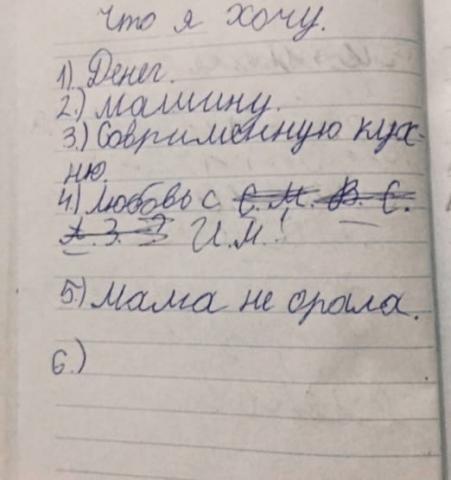 что я хочу.
1) Денег.
2.) машину.
3.) Соврименную кух-
ню.
4.) Любовь с С. М. В. С.
А. З. ? И.М.!
5.) Мама не орала.
6.)